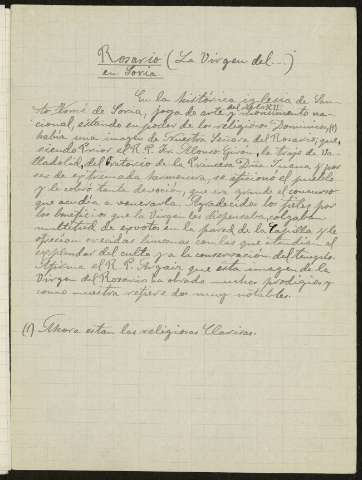 Rosario (La Virgen del...)
en Soria
En la histórica iglesia de San-
to Tomé de Soria, joya de arte del siglo XII y monumento na-
cional, estando en poder de los religiosos Dominicos, (1)
había una imagen de Nuestra Señora del Rosario, que,
siendo Prior el R. P. Fr. Alonso Giron, la trajo de Va-
lladolid, del Oratorio de la Princesa Dña Juana y por
ser de extremada hermosura, se aficionó el pueblo
y le cobró tanta devoción, que era grande el concurso
que acudía a venerarla. Agradecidos los fieles por
los beneficios que la Virgen les dispensaba, colgaban
multitud de exvotos en la pared de la Capilla y le
ofrecían crecidas limosnas con las que atendían al
explendor del culto y a la conservación del templo.
Afirma el R. P. Argaiz que esta imagen de la
Virgen del Rosario ha obrado muchos prodigios y
como muestra refiere dos muy notables.
(1) Ahora están las religiosas Clarisas.